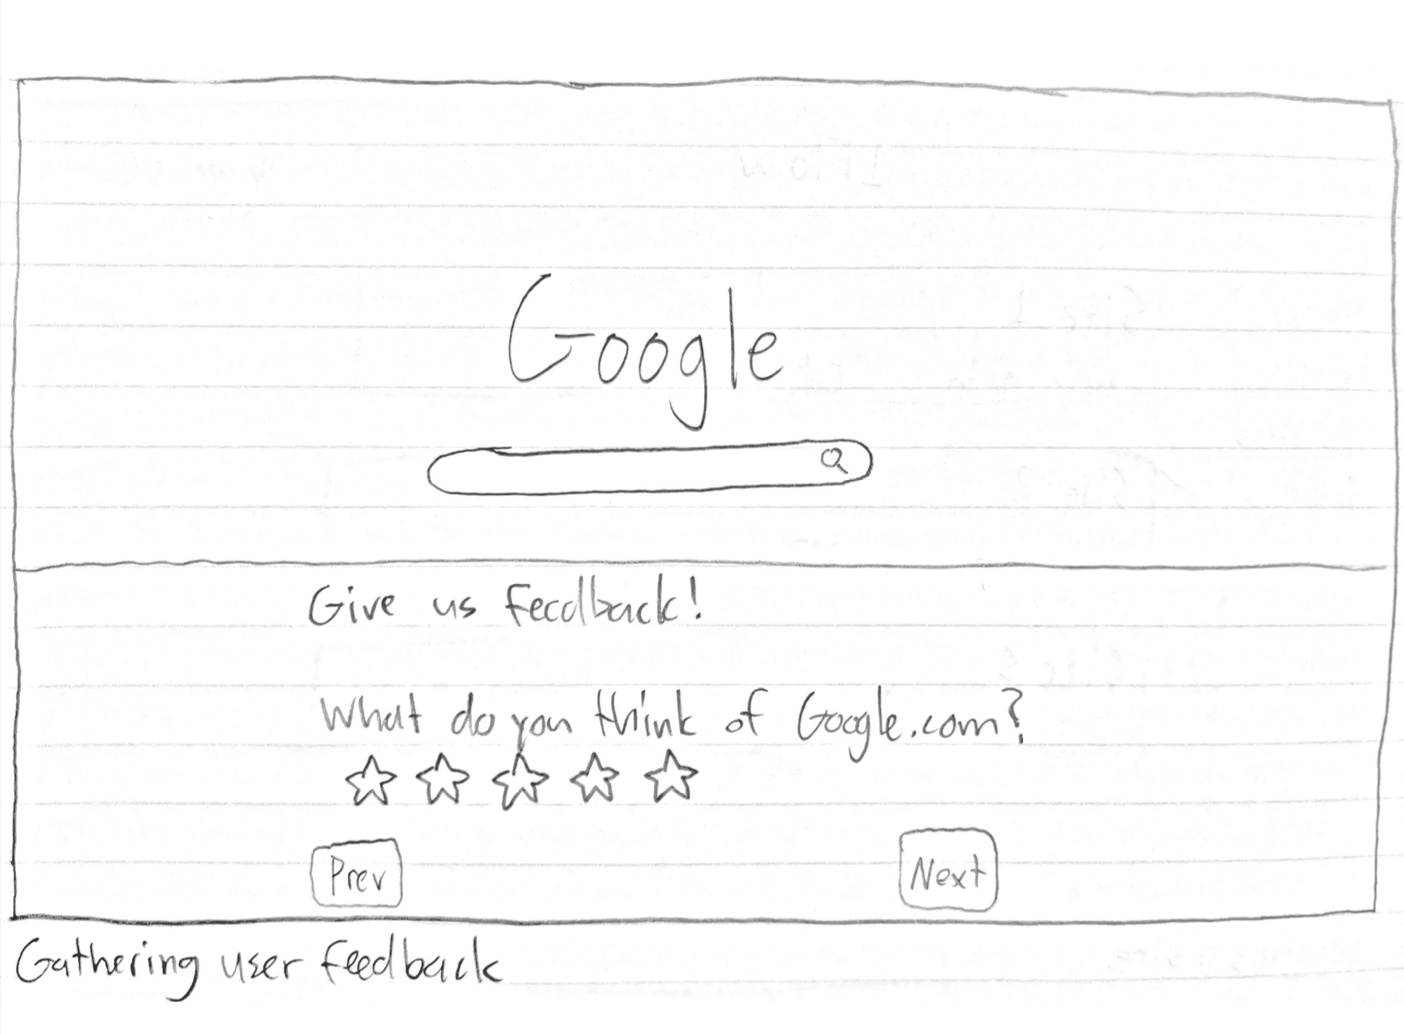 Google
Give us feedback!
What do you think of Google.com?
Prev
Next
Gathering user feedback